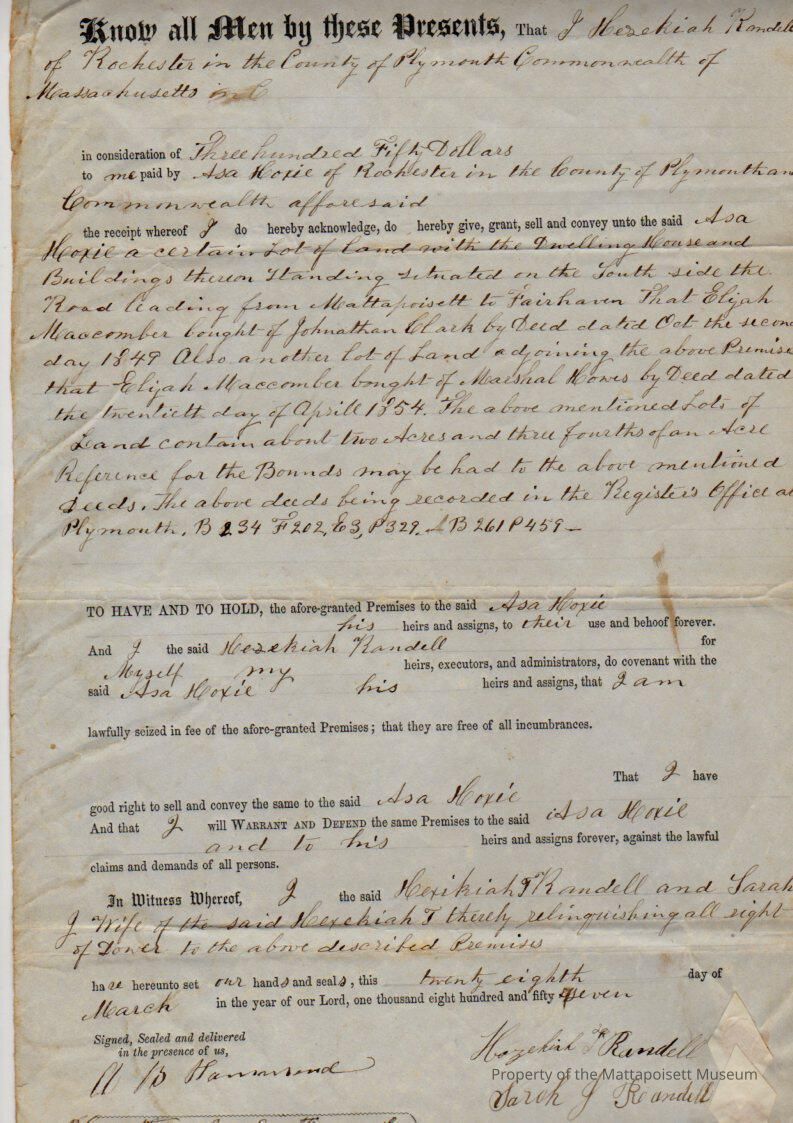 Know all Men by these Presents, That I Hezekiah Randell
of Rochester in the County of Plymouth Commonwealth of
Massachusetts
in consideration of Three hundred Fifty Dollars
to me paid by Asa Hoxie of Rochester in the County of Plymouth an
Commonwealth afforesaid
the receipt whereof I do hereby acknowledge, do hereby give, grant, sell and convey unto the said Asa
Hoxie a certain Lot of land with the Dwelling House and
Buildings thereon Standing situated on the South side the
Road leading from Mattapoisett to Fairhaven That Elijah
Maccomber bought of Johnathan Clark by Deed dated Oct the second
day 1849 Also another Lot of Land adjoining the above Premise
that Elijah Maccomber bought of Marshal Howes by Deed dated
the twentieth day of Aprill 1854. The above mentioned Lots of
Land contain about two Acres and three fourths of an Acre
Reference for the Bounds may be had to the above mentioned
Deeds. The above deeds being recorded in the Register's Office at
Plymouth. B 234 F 202, E3, P 329. B 261 P 459 –
TO HAVE AND TO HOLD, the afore-granted Premises to the said Asa Hoxie
his heirs and assigns, to their use and behoof forever.
And I the said Hezekiah Randell for
Myself my heirs, executors, and administrators, do covenant with the
said Asa Hoxie his heirs and assigns, that I am
lawfully seized in fee of the afore-granted Premises; that they are free of all incumbrances.
That I have
good right to sell and convey the same to the said Asa Hoxie
And that I will WARRANT AND DEFEND the same Premises to the said Asa Hoxie
and to his heirs and assigns forever, against the lawful
claims and demands of all persons.
In Witness Whereof, I the said Hexikiah T Randell and Sarah
J Wife of the said Hexekiah T thereby relinquishing all right
of Dower to the above described Premises
have hereunto set our hands and seals, this twenty eighth day of
March in the year of our Lord, one thousand eight hundred and fifty seven
Signed, Sealed and delivered
in the presence of us,
Hezekiah T Randell
Property of the Mattapoisett Museum
Sarah J Randell